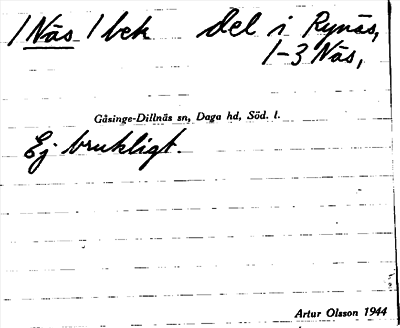 / Näs / bek del i Rynäs,
1-3 Näs,
Gåsinge-Dillnäs sn, Daga hd, Söd. l.
Ej brukligt.
Artur Olsson 1944